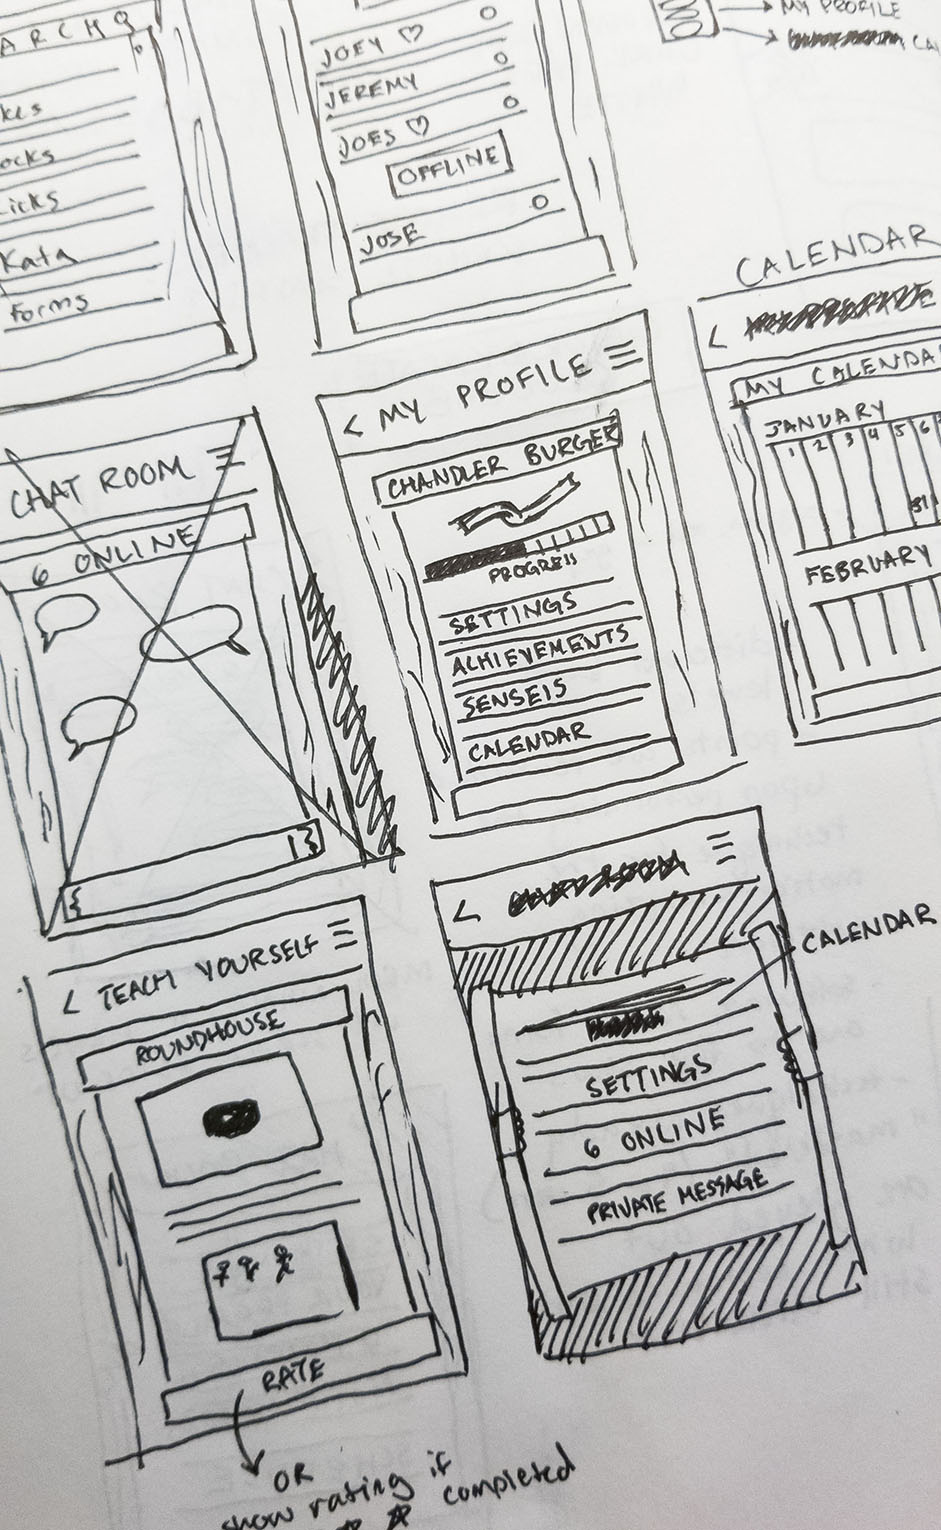 ARCH
Kata
Forms
JOEY ♡
JEREMY
JOES ♡
OFFLINE
JOSE
MY PROFILE
CALENDAR
MY CALENDA
JANUARY
1 2 3 4 5 6
31
FEBRUARY
CHAT ROOM
6 ONLINE
< MY PROFILE
CHANDLER BURGER
PROGRESS
SETTINGS
ACHIEVEMENTS
SENSEIS
CALENDAR
< TEACH YOURSELF
ROUNDHOUSE
RATE
OR
show rating if
completed
CALENDAR
SETTINGS
6 ONLINE
PRIVATE MESSAGE